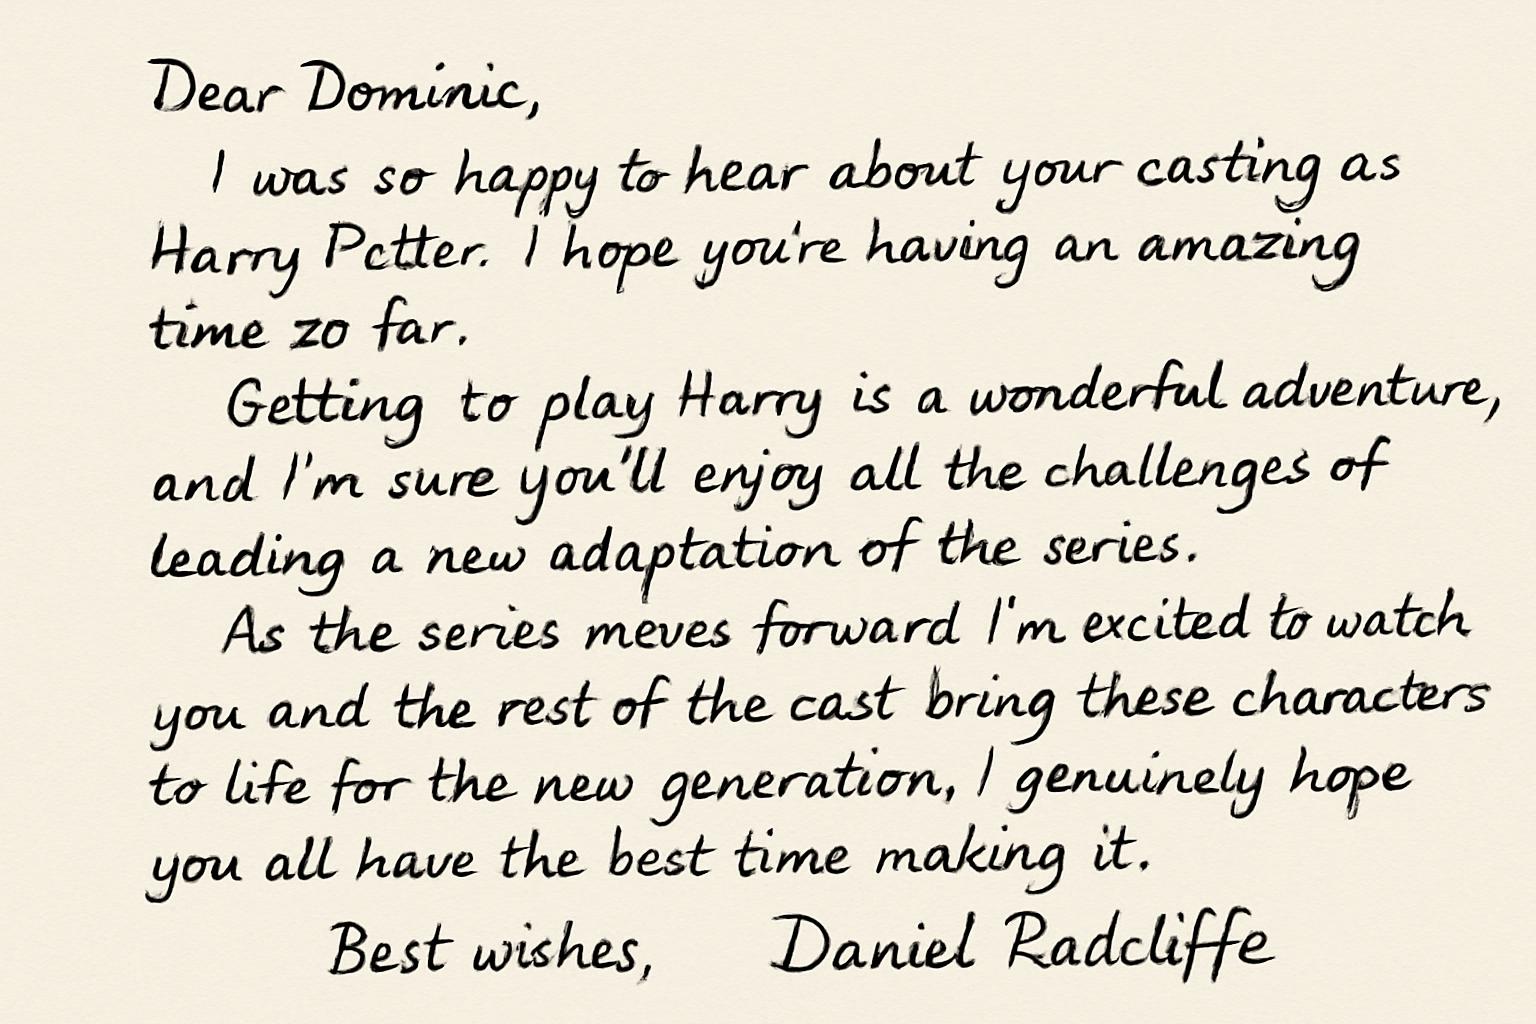 Dear Dominic,
I was so happy to hear about your casting as
Harry Pctter. I hope you're having an amazing
time zo far.
Getting to play Harry is a wonderful adventure,
and I'm sure you'll enjoy all the challenges of
leading a new adaptation of the series.
As the series meves forward I'm excited to watch
you and the rest of the cast bring these characters
to life for the new generation, I genuinely hope
you all have the best time making it.
Best wishes, Daniel Radcliffe